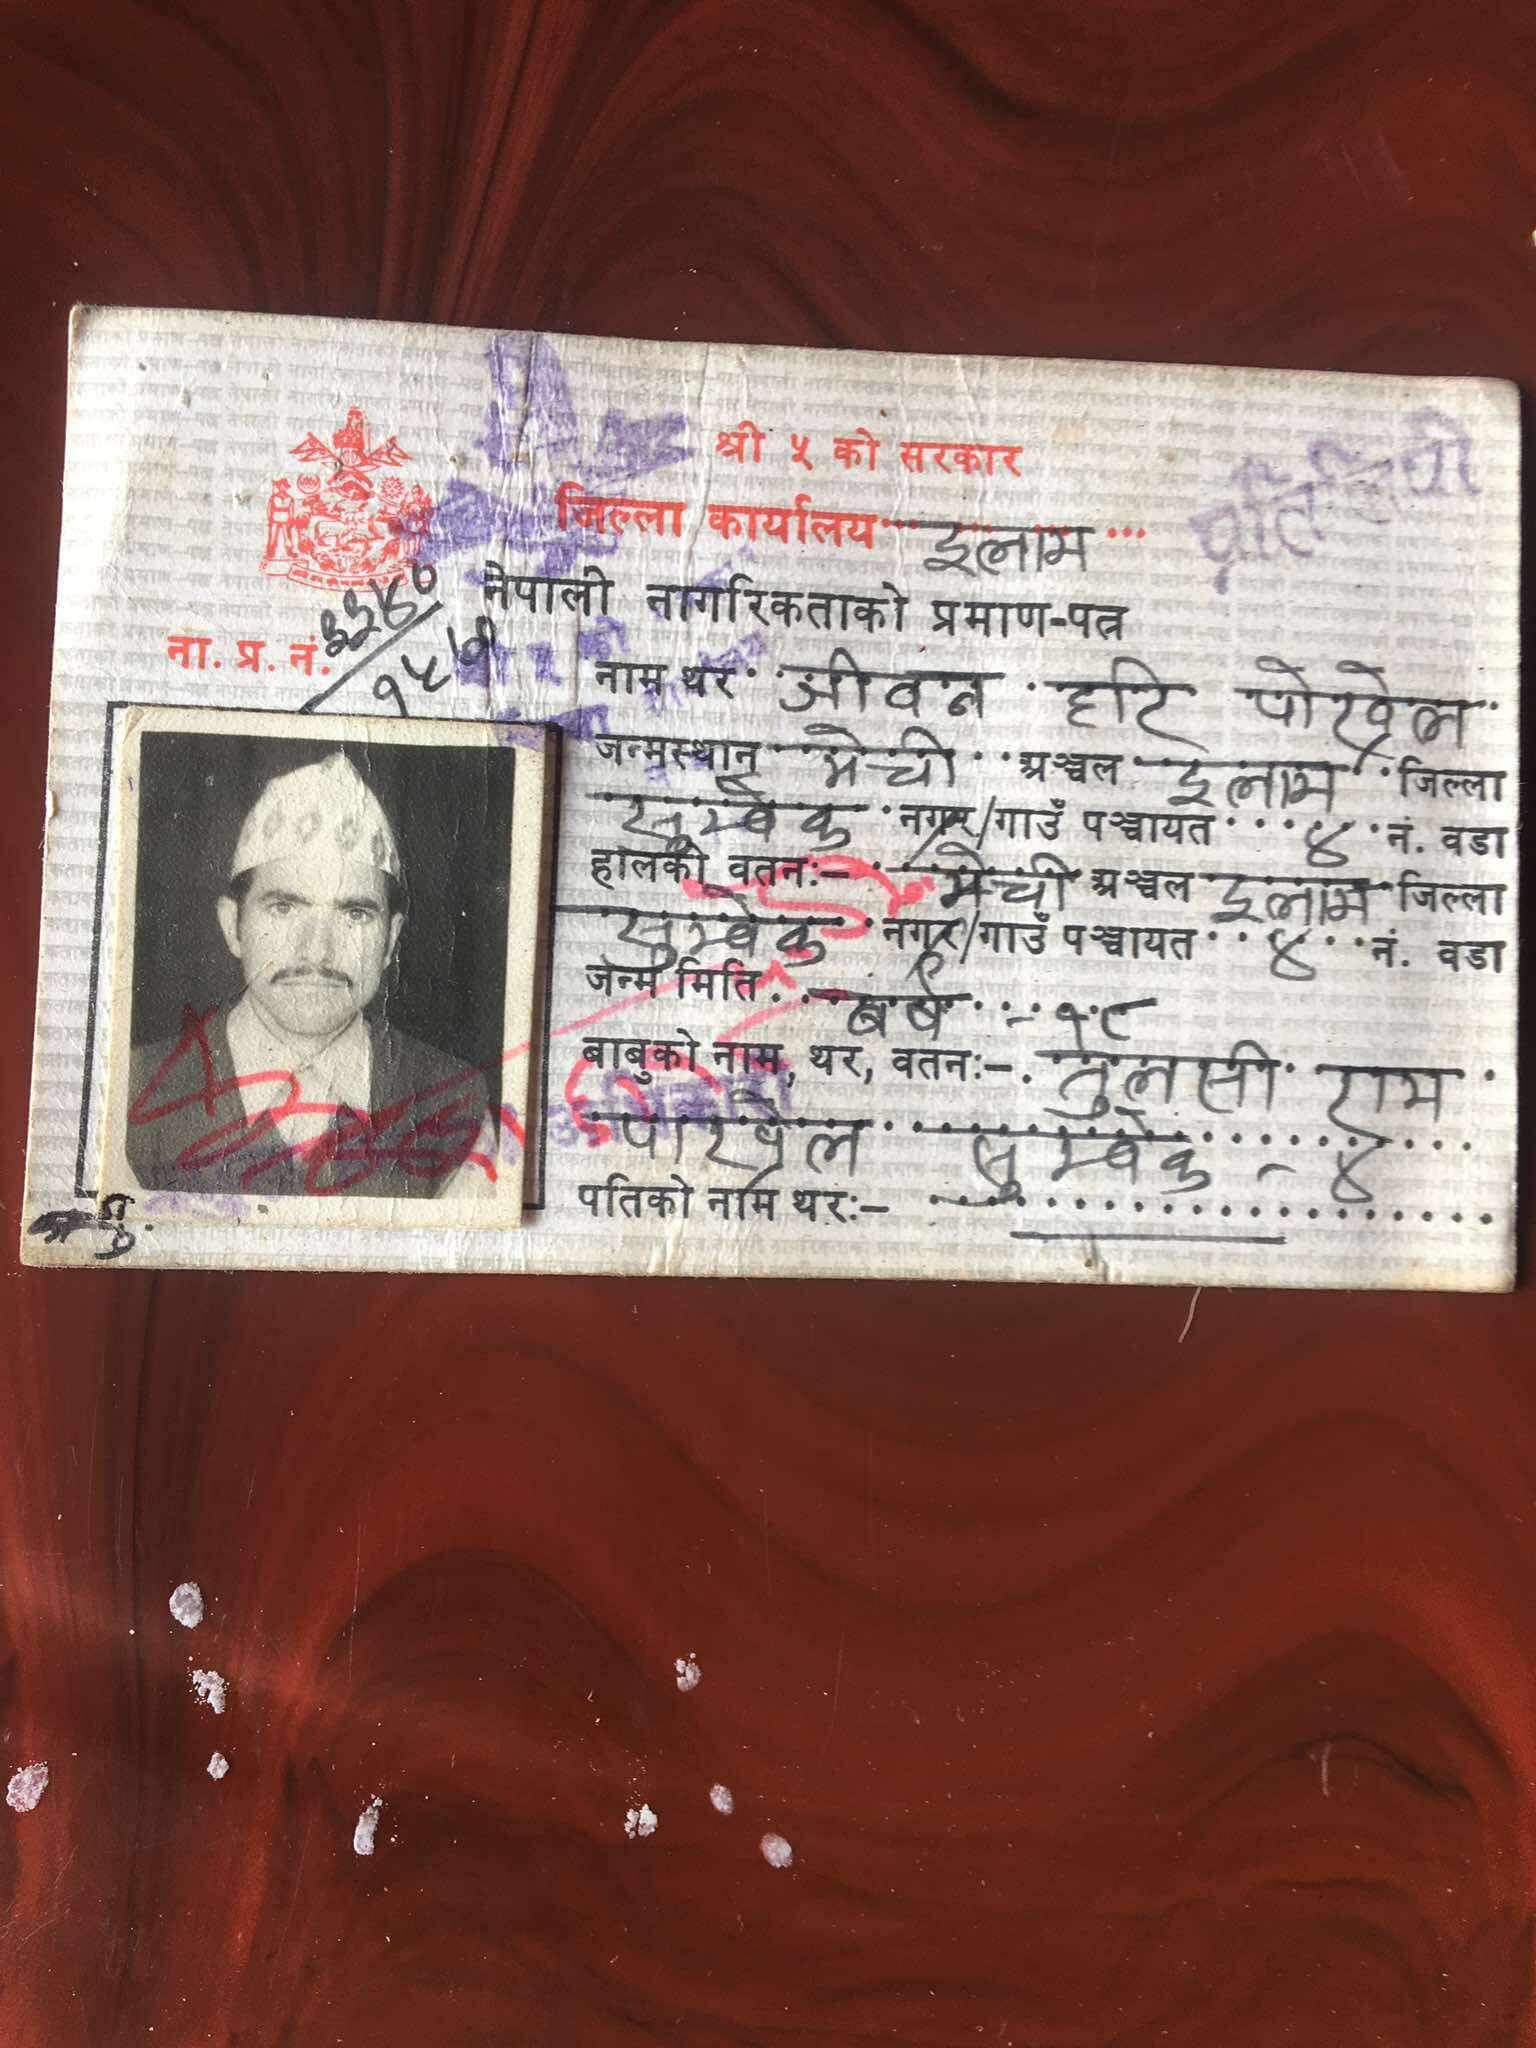 श्री ५ को सरकार
जिल्ला कार्यालय इलाम
प्रतिलिपी
नेपाली नागरिकताको प्रमाण-पत्र
ना. प्र. नं. ३३४०
नाम थर जीवन हरि पोख्रेल
जन्मस्थान मेची अञ्चल इलाम जिल्ला
सुम्बेक नगर/गाउँ पञ्चायत ४ नं. वडा
हालको वतन:- मेची अञ्चल इलाम जिल्ला
सुम्बेक नगर/गाउँ पञ्चायत ४ नं. वडा
जन्म मिति वर्ष - १८
बाबुको नाम, थर, वतन:- तुलसी राम
पोख्रेल सुम्बेक - ४
पतिको नाम थर:-